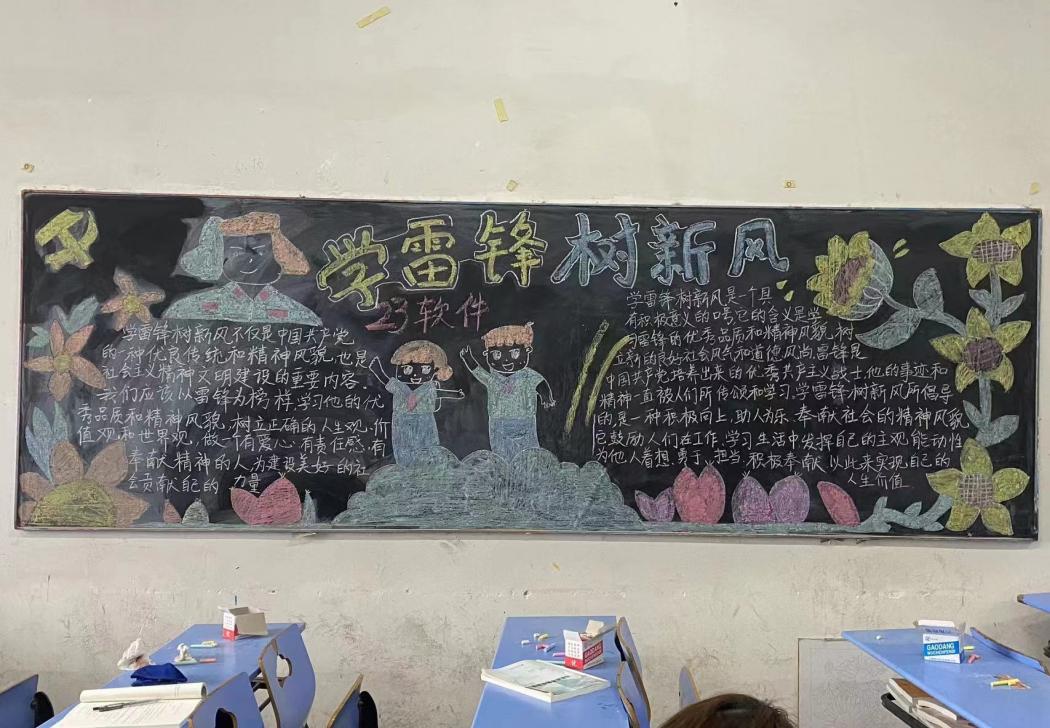 学雷锋 树新风
23软件
学雷锋树新风不仅是中国共产党
的一种优良传统和精神风貌,也是
社会主义精神文明建设的重要内容
我们应该以雷锋为榜样,学习他的优
秀品质和精神风貌,树立正确的人生观、价
值观和世界观,做一个有爱心、有责任感、有
奉献精神的人为建设美好的社
会贡献自己的力量
学雷锋树新风是一个具
有积极意义的口号它的含义是学
习雷锋的优秀品质和精神风貌,树
立新的良好社会风气和道德风尚,雷锋是
中国共产党培养出来的优秀共产主义战士他的事迹和
精神一直被人们所传颂和学习,学雷锋树新风所倡导
的是一种积极向上、助人为乐、奉献社会的精神风貌
它鼓励人们在工作、学习生活中发挥自己的主观能动性
为他人着想、勇于担当、积极奉献以此来实现自己的
人生价值
GAODANG
WUCHENFENBI